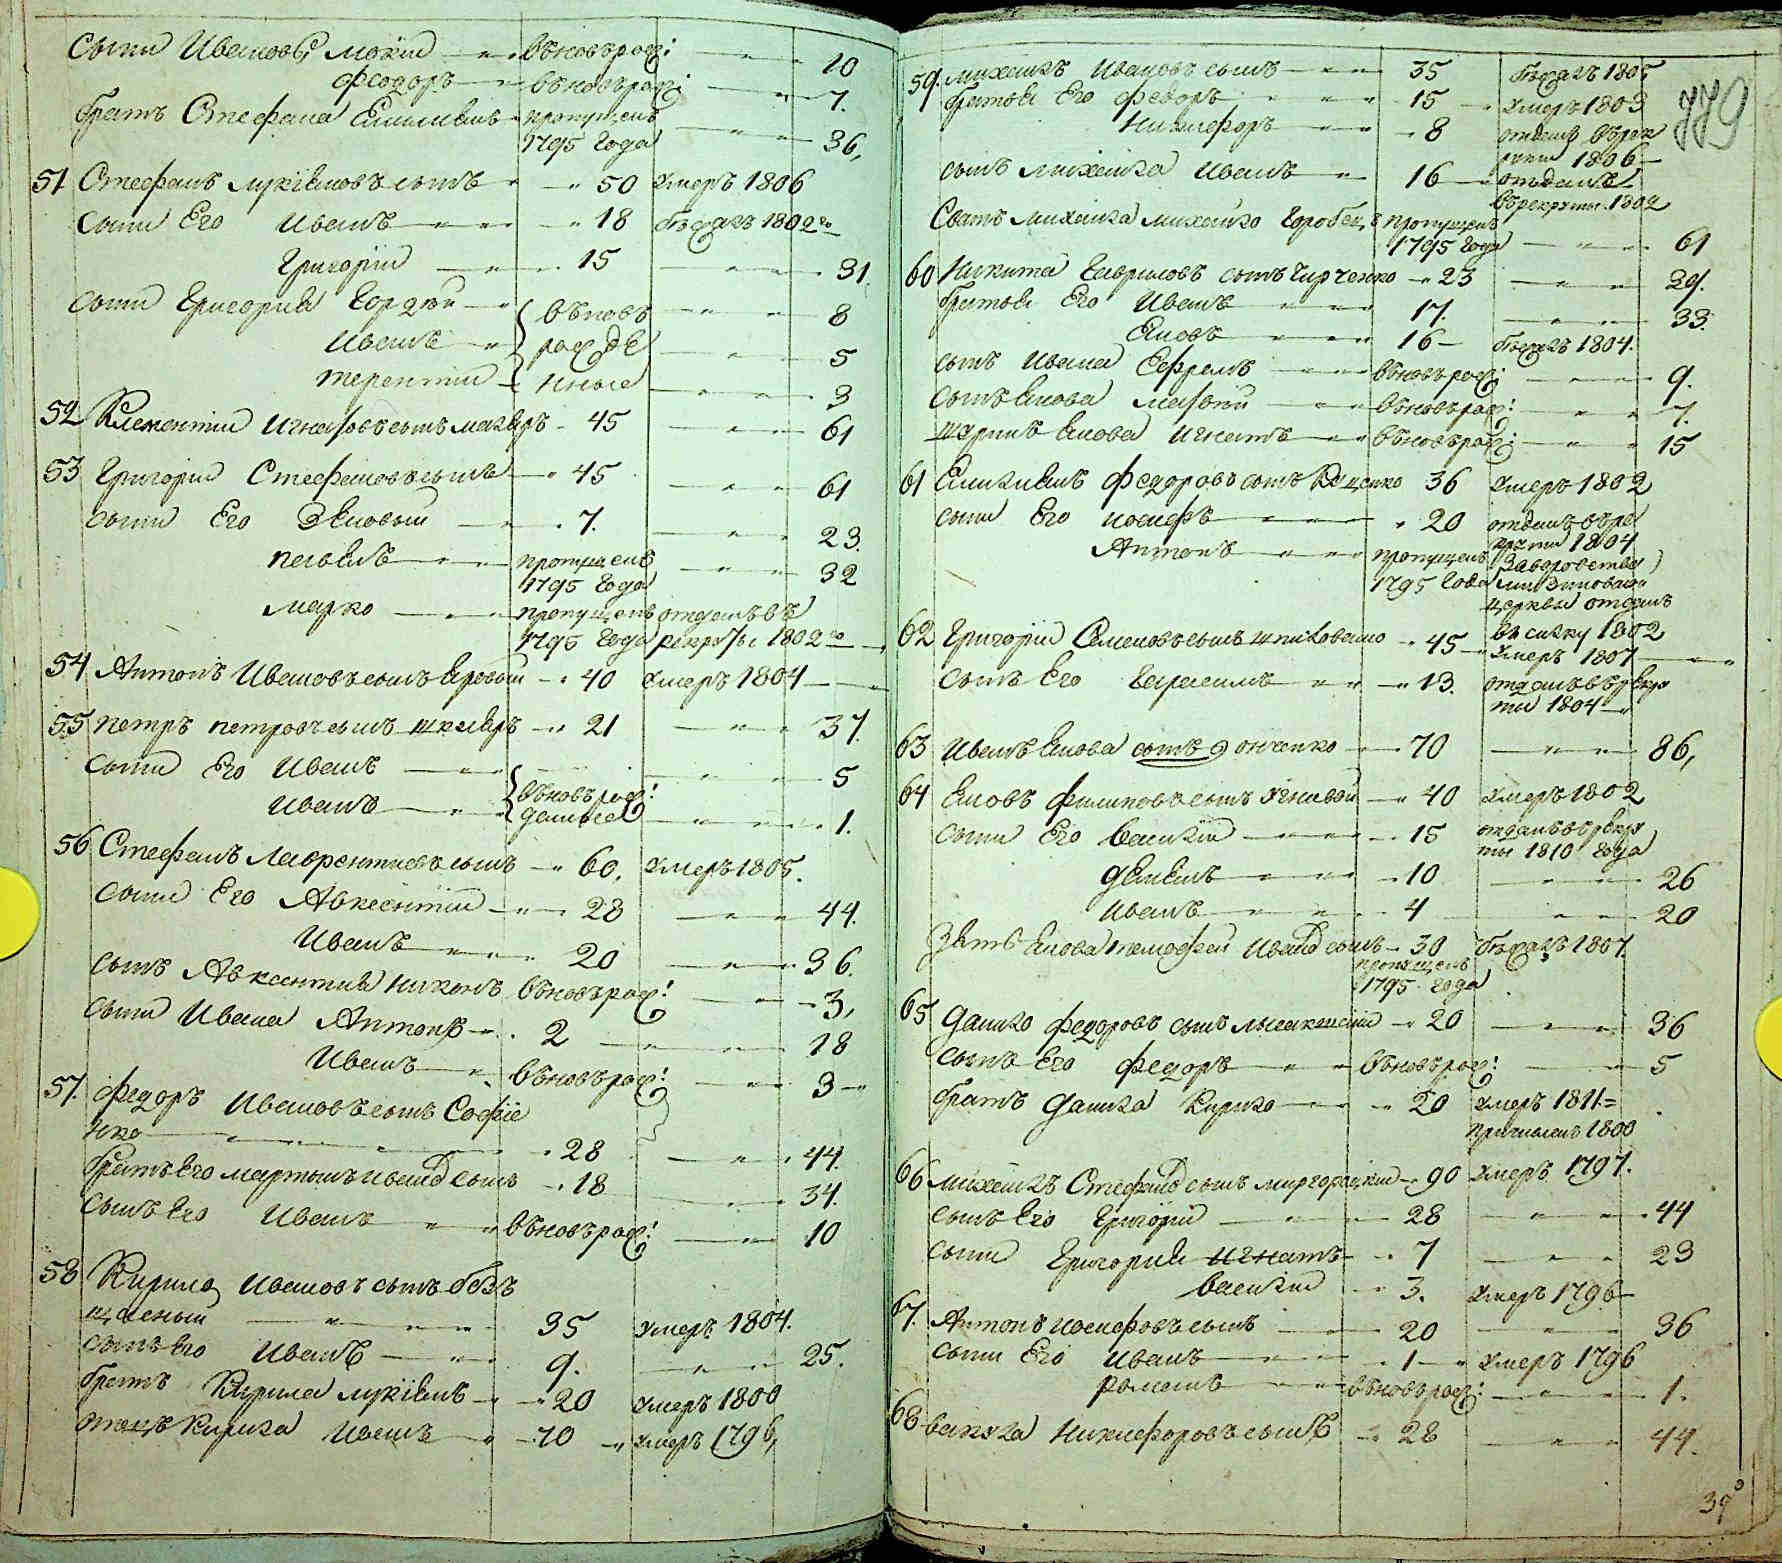 сыни Ивановы Мокій — вновърож: — 10
Феодоръ — вновърож: — 7.
братъ Стефана Емельянъ пропущенъ
1795 Года — 36,
51 Стефанъ Лукіяновъ сынъ — 50 умеръ 1806
сыни Его Иванъ — 18 бѣжалъ 1802го
Григорій — 15 — 31.
сыни Григорія Гордѣй — вѣновъ — 8
Иванъ — рожде — 5
терентій — нные — 3
52 Климентій Игнатовъ сынъ Макаръ — 45 — 61
53 Григорій Стефановъ сынъ — 45 — 61
сыни Его Зѣновій — 7. — 23.
павелъ — пропущенъ
1795 Года — 32
марко — пропущенъ отданъ въ
1795 Года рекруты 1802го
54 Антонъ Ивановъ сынъ Яровый — 40 умеръ 1804
55 петръ петровъ сынъ шкляръ — 21 — 37.
сыни Его Иванъ — 5
вѣновърож:
Иванъ — данные — 1.
56 Стефанъ Лаврентіевъ сынъ — 60. умеръ 1805.
сыни Его Авксентій — 28 — 44.
Иванъ — 20 — 36.
сынъ Авксентія Никонъ вѣновърож: — 3,
сыни Ивана Антонъ — 2 — 18
Иванъ — вѣновърож: — 3
57. Федоръ Ивановъ сынъ Софіе
нко — 28 — 44.
братъ Его мартынъ Иванов сынъ — 18 — 34.
сынъ Его Иванъ — вѣновърож: — 10
58 Кирило Ивановъ сынъ без
щасный — 35 умеръ 1804.
сынъ Его Иванъ — 9. — 25.
братъ Кирила Лукіянъ — 20 умеръ 1800
отецъ Кирила Иванъ — 70 умеръ 1796,
779
59. михаилъ Ивановъ сынъ — 35 бѣжалъ 1805
братья Его Федоръ — 15 — умеръ 1803
Никифоръ — 8 отданъ врек
рути 1806
сынъ михаила Иванъ — 16 — отданъ
врекруты 1802
Сватъ михаила михайло Горобецъ пропущенъ
1795 Года — 61
60 Никита Гавриловъ сынъ Кирченко — 23 — 39.
братья Его Иванъ — 17. — 33.
Яковъ — 16 — бѣжалъ 1804.
сынъ Ивана Ефремъ — вѣновърож: — 9.
сынъ Якова матвій — вѣновърож: — 7.
шуринъ Якова Игнатъ — вѣновърож: — 15
61 Емиліянъ Федоровъ сынъ Куценко 36 умеръ 1802
сыни Его иосифъ — 20 отданъ врек
рути 1804
Антонъ — пропущенъ
1795 Года заворовства
церквы отданъ
в силку 1802
62 Григорій Семеновъ сынъ — 45 — умеръ 1807
сынъ Его Герасимъ — 13. отданъ врекру
ти 1804
63 Иванъ Якова сынъ — 70 — 86,
64 Яковъ Филиповъ сынъ — 40 умеръ 1802
сыни Его Василій — 15 отданъ врекру
ты 1810 Года
демянъ — 10 — 26
Иванъ — 4 — 20
Зять Якова тимофей Иванов сынъ — 30 бѣжалъ 1807.
пропущенъ
1795 года
65 Данило Федоровъ сынъ — 20 — 36
сынъ Его Федоръ — вѣновърож: — 5
братъ Данила Кирило — 20 умеръ 1811
причисленъ 1800
66 михаилъ Стефанов сынъ миргородскій — 90 умеръ 1797.
сынъ Его Григорій — 28 — 44
сыни Григорія Игнатъ — 7 — 23
Василій — 3. умеръ 1796
67. Антонъ Иосифовъ сынъ — 20 — 36
сыни Его Иванъ — 1 — умеръ 1796
романъ — вѣновърож: — 1.
68 вакула Никифоровъ сынъ — 28 — 44.
39